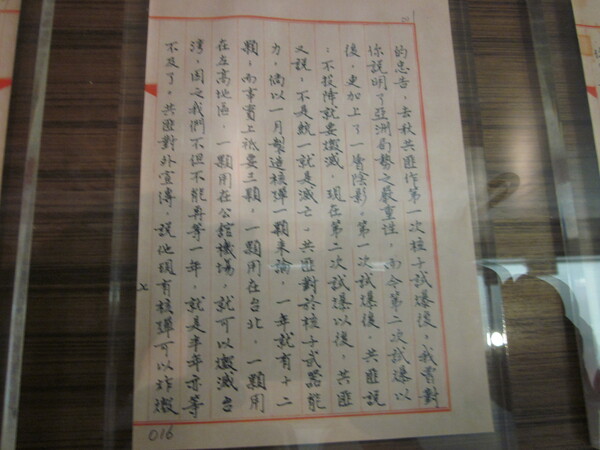 的忠告，去秋共匪作第一次核子試爆後，我曾對
你說明了亞洲局勢之嚴重性，而今第二次試爆以
後，更加上了一層陰影，第一次試爆後，共匪說
：不投降就要燬滅，現在第二次試爆以後，共匪
又說，不是統一就是滅亡，共匪對於核子武器能
力，倘以一月製造核彈一顆來論，一年就有十二
顆，而事實上祇要三顆，一顆用在台北，一顆用
在左高地區，一顆用在公館機場，就可以燬滅台
灣，因之我們不但不能再等一年，就是半年亦等
不及了。共匪對外宣傳，說他須有核彈可以炸燬
016